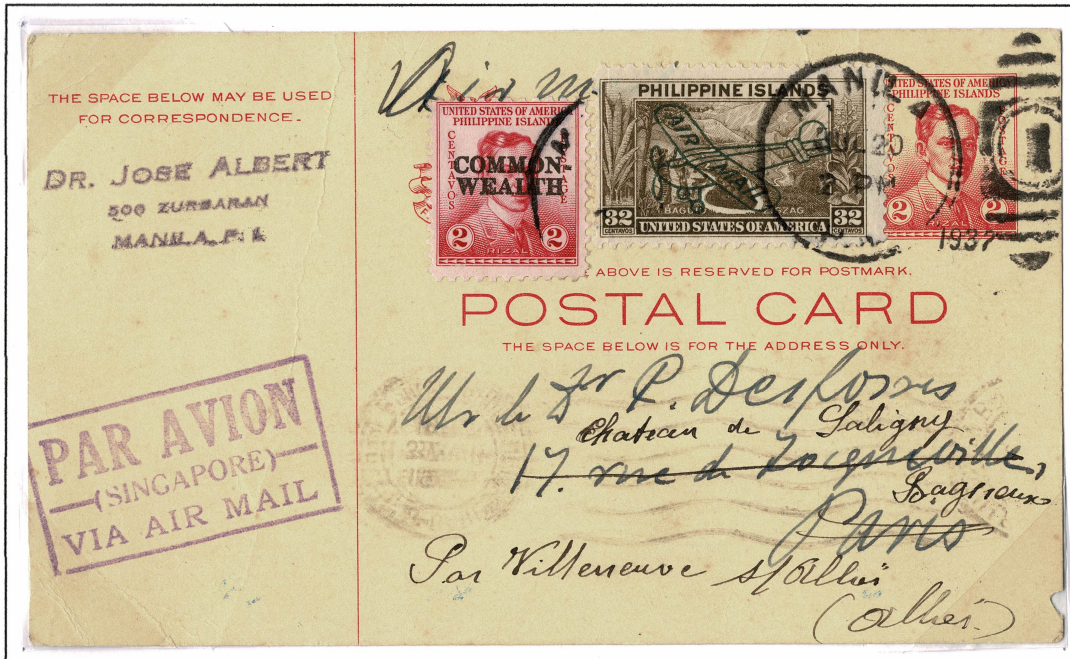 THE SPACE BELOW MAY BE USED
FOR CORRESPONDENCE.
DR. JOSE ALBERT
500 ZURBARAN
MANILA, P. I.
PAR AVION
(SINGAPORE)
VIA AIR MAIL
UNITED STATES OF AMERICA
PHILIPPINE ISLANDS
CENTAVOS
POSTAGE
COMMON-
WEALTH
2 2
RIZAL
PHILIPPINE ISLANDS
AIR MAIL
32 32
CENTAVOS CENTAVOS
UNITED STATES OF AMERICA
UNITED STATES OF AMERICA
PHILIPPINE ISLANDS
CENTAVOS
POSTAGE
2 2
MANILA
JUL 20
2 PM
1937
1
ABOVE IS RESERVED FOR POSTMARK.
POSTAL CARD
THE SPACE BELOW IS FOR THE ADDRESS ONLY.
Mr le Dr P. Desfosses
Chateau de Saligny
17. rue de
Paris
Par Villeneuve s/Allier
(Allier)